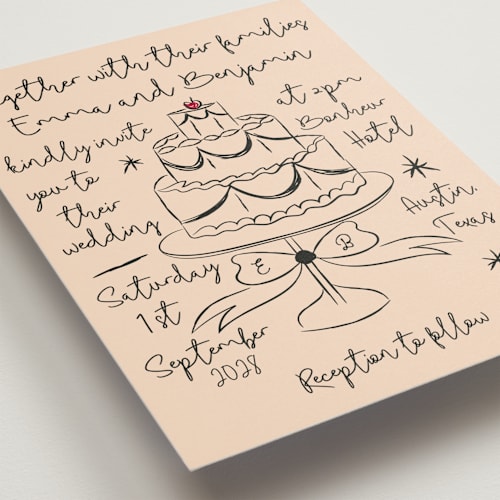 ogether with their families
Emma and Benjamin
kindly invite
you to
their
wedding
at 2pm
Bonheur
Hotel
Austin,
Texas
E B
Saturday
1st
September
2028
Reception to follow